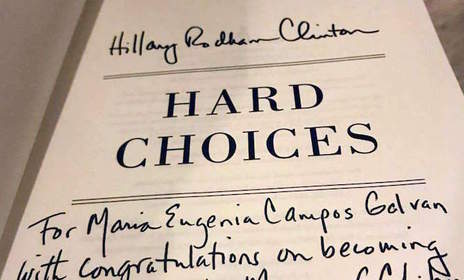 Hillary Rodham Clinton
HARD
CHOICES
For Maria Eugenia Campos Galvan
with congratulations on becoming